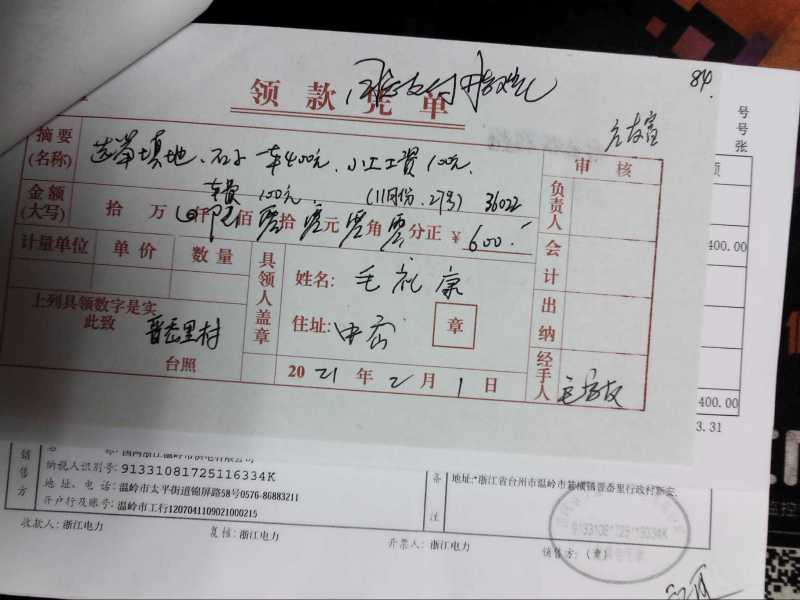 84.
领款凭单
号
号
张
摘要
(名称)
填地、石子 车400元、小工工资100元.
车费 100元 (11月份.27号) 36022
审核
金额
(大写)
拾 万 仟 陆 佰 零 拾 零 元 零 角 零 分正 ¥ 600.-
负责人
会计
出纳
经手人
计量单位 单价 数量
具领人盖章
姓名: 毛礼康
住址:
章
上列具领数字是实
此致
晋岙里村
台照
2021 年 2 月 1 日
400.00
400.00
3.31
销售方
纳税人识别号: 91331081725116334K
地 址、电 话: 温岭市太平街道锦屏路58号0576-86883211
开户行及账号: 温岭市工行1207041109021000215
备注
地址:*浙江省台州市温岭市箬横镇晋岙里行政村新安.
91331081725116334K
收款人: 浙江电力
复核: 浙江电力
开票人: 浙江电力
销售方: (章)